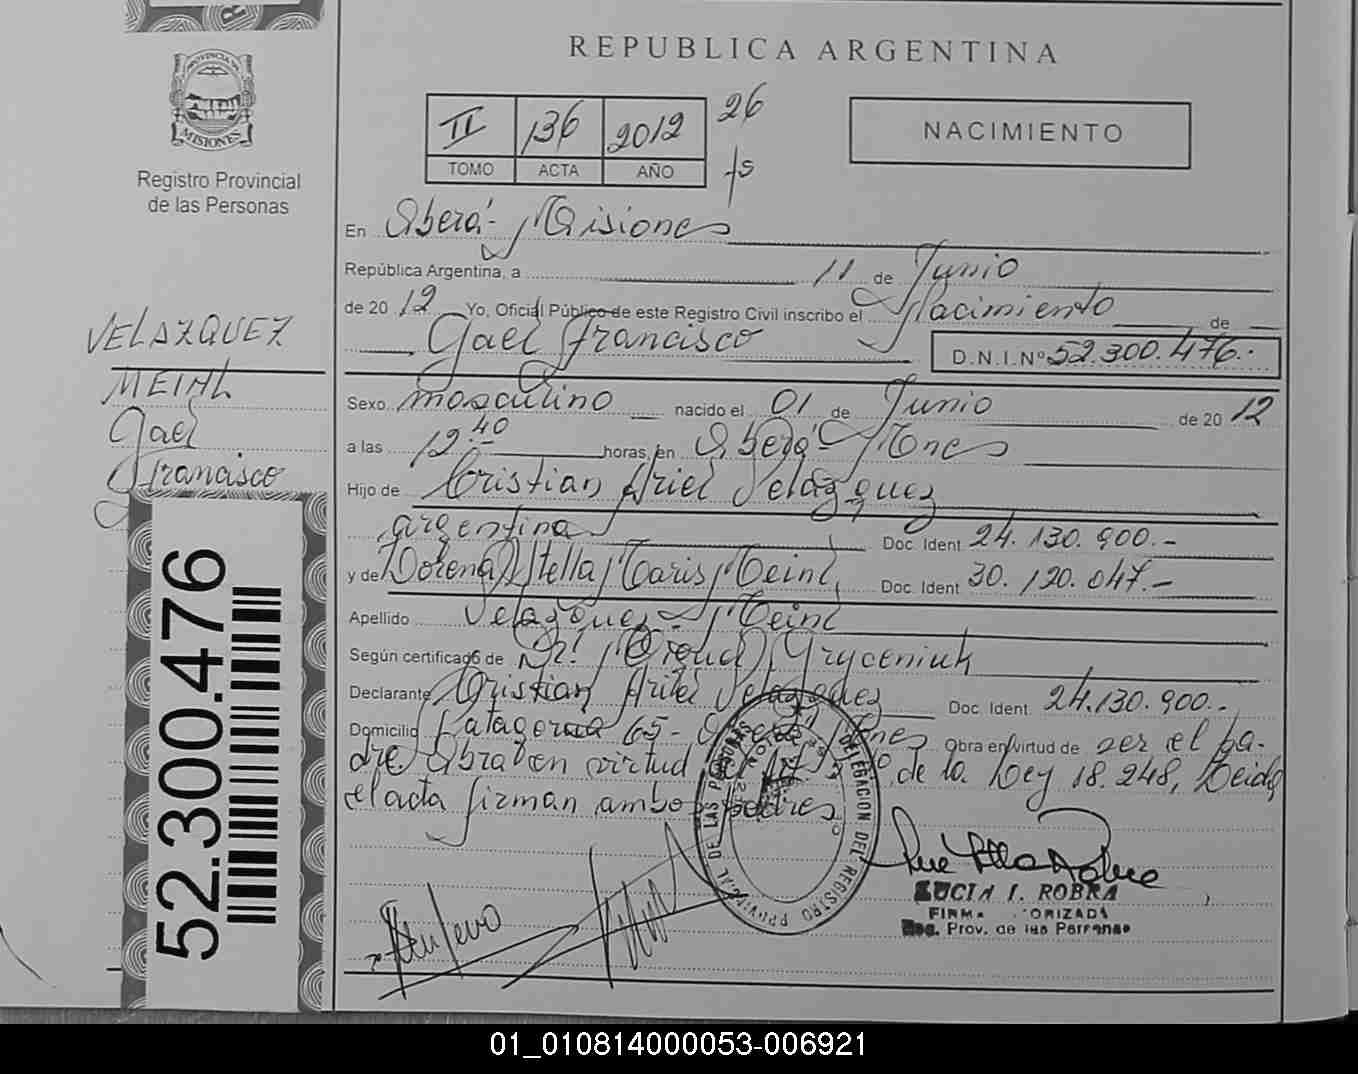 REPUBLICA ARGENTINA
PROVINCIA DE
MISIONES
Registro Provincial
de las Personas
II 136 2012 26
TOMO ACTA AÑO fs
NACIMIENTO
En Oberá - Misiones
República Argentina, a 11 de Junio
de 2012 Yo, Oficial Público de este Registro Civil inscribo el Nacimiento de
Gael Francisco D.N.I.Nº 52.300.476.-
VELAZQUEZ
MEINL
Gael
Francisco
Sexo masculino nacido el 01 de Junio de 2012
a las 12:40 horas, en Oberá - Mnes
Hijo de Cristian Ariel Velazquez
argentina Doc. Ident 24.130.900.-
y de Lorena Stella Maris Meinl Doc. Ident 30.120.047.-
Apellido Velazquez - Meinl
Según certificado de Dr. Gryceniuk
Declarante Cristian Ariel Velazquez Doc. Ident. 24.130.900.-
Domicilio Patagonia 65 - Oberá Mnes Obra en virtud de ser el pa-
dre. Obra en virtud de la Ley 18.248, Leida
el acta firman ambos padres
DELEGACION DEL REGISTRO PROVINCIAL DE LAS PERSONAS
LUCIA I. ROBRA
FIRMA AUTORIZADA
Reg. Prov. de las Personas
52.300.476
01_010814000053-006921